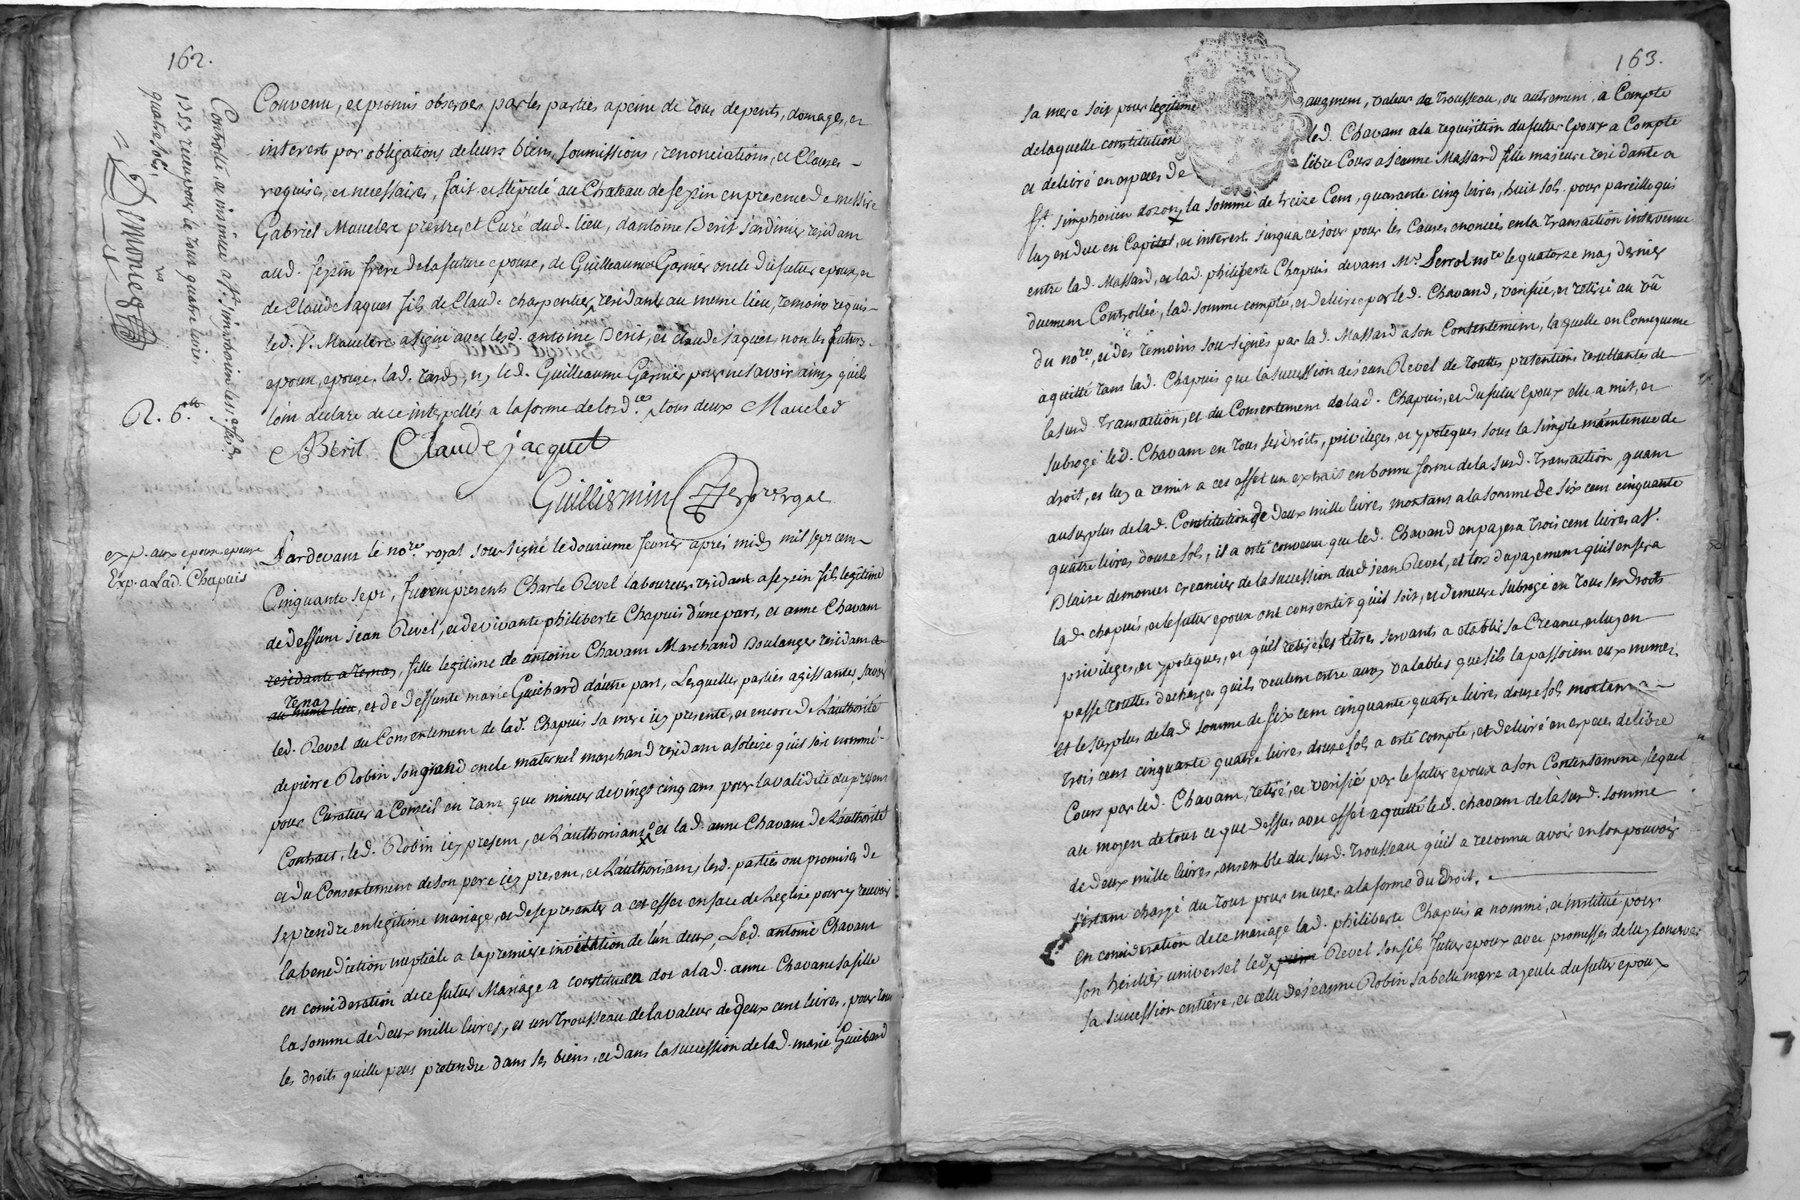 162.
Convenu, et promis observer par les parties a peine de tous depents, domages, et
interests par obligations de leurs biens, soumissions, renonciations, et Clauses
requises, et necessaires, fait et stipulé au Chateau de feyzin en presence de messire
Gabriel Mauclerc prestre, et Curé dud. lieu, d'antoine Berit jardinier residant
aud. feyzin frere de la future epouse, de Guilleaume Garnier oncle du futur epoux, et
de Claude jaques fils de Claude charpentier, residants au meme lieu, temoins requis
led. Sr. Mauclerc a signé avec lesd. antoine Berit, et claude jaques non les futurs
epoux, epouse, lad. ny led. Guilleaume Garnier pour ne savoir ainsy qu'ils
l'ont declaré de ce interpellés a la forme de lord.ces tous deux Maucler
Berit Claude jacquet
Guillermin no.re royal
Controllé et insinué a St. simphorien les
1757 receu pour le tout quatre livres
quatre sols
R. 6.
exp. aux epoux epouse
Exp. a Lad. Chapuis
Pardevant le no.re royal sousigné le douzieme fevrier après midy mil sept cent
Cinquante sept, furent presents Charle Revel laboureur residant a feyzin fils legitime
de deffunt jean Revel, et de vivante philiberte Chapuis d'une part, et anne Chavant
residante a ternay, fille legitime de antoine Chavant Marchand Boulanger residant a
ternay
au meme lieu, et de deffunte marie Guichard d'autre part, Lesquelles parties agissantes savoir
led. Revel du Consentement de lad. Chapuis sa mere icy presente, et encore de L'authorité
de pierre Robin son grand oncle maternel marchand residant a soleize qu'il s'est nommé
pour Curateur a Conseil en tant que mineur de vingt cinq ans pour la validité du present
Contract, led. Robin icy present, et L'authorisant et lad. anne Chavant de L'authorité
et du Consentement de son pere icy present, et L'authorisant, lesd. parties ont promises de
se prendre en legitime mariage, et de se presenter a cet effet en face de L'eglise pour y recevoir
la benediction nuptiale a la premiere invitation de l'un deux, Led. antoine Chavant
en consideration de ce futur Mariage a constitué en dot a lad. anne Chavant sa fille
la somme de deux mille livres, et un trousseau de la valeur de deux cent livres, pour tous
les droits qu'elle peut pretendre dans ses biens, et dans la succession de lad. marie Guichard
163.
sa mere soit pour legitime augment, valeur de trousseau, ou autrement, a Compte
de laquelle constitution led. Chavant a la requisition du futur Epoux a Compté
et delivré en especes de libre Cours a jeanne Massard fille majeure residante a
St. simphorien dozon, la somme de treize Cent, quarante cinq livres, huit sols pour pareille qui
luy en due en Capital, et interests jusqua ce jour pour les Causes enoncées en la transaction intervenue
entre lad. Massard, et lad. philiberte Chapuis devant Me. Serrol no.re le quatorze may dernier
duement Controllée, lad. somme comptée, et delivrée par led. Chavand, verifiée, et retirée au vû
du no.re, et des temoins sousignés par lad. Massard a son Contentement, laquelle en Consequence
a quitté tant lad. Chapuis que la succession de jean Revel de touttes pretentions resultantes de
la susd. transaction, et du Consentement de lad. Chapuis, et du futur Epoux elle a mis, et
subrogé led. Chavant en tous ses droits, privileges, et ypoteques sous la simple maintenue de
droit, et luy a remis a cet effet un extrait en bonne forme de la susd. transaction, quant
au surplus de lad. Constitution de deux mille livres montant a la somme de six cent cinquante
quatre livres douze sols, il a esté convenu que led. Chavand en payera trois cent livres a Sr.
Blaise demonet creancier de la succession dud. jean Revel, et lors du payement qu'il en fera
lad. chapuis, et le futur epoux ont consentit qu'il soit, et demeure subrogé en tous ses droits
privileges, et ypoteques, et qu'il retire les titres servants a etablir sa Creance, et luy en
passe touttes decharges qu'ils veulent estre aussy valables que s'ils la passoient eux memes
et le surplus de lad. somme de six cent cinquante quatre livres douze sols montant a
trois cent cinquante quatre livres douze sols a esté compté, et delivré en especes de libre
Cours par led. Chavant, retiré, et verifié par le futur epoux a son Contentement, lequel
au moyen de tout ce que dessus avec effet a quitté led. chavant de la susd. somme
de deux mille livres, ensemble du susd. trousseau qu'il a reconnu avoir en son pouvoir
s'estant chargé du tout pour en user a la forme du droit.
en consideration de ce mariage lad. philiberte Chapuis a nommé, et institué pour
son heritier universel led. Revel son fils futur epoux avec promesses de luy conserver
sa succession entiere, et celle de jeanne Robin sa belle mere ayeule du futur epoux